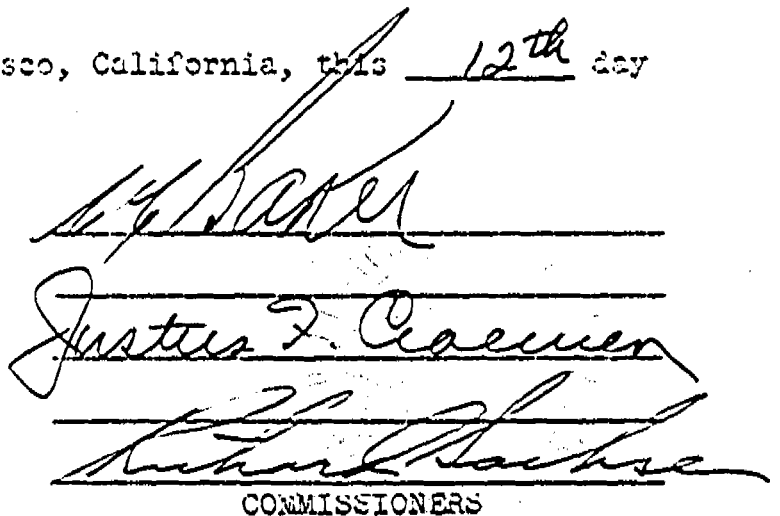 sco, California, this 12th day
Baker
Justus F. Craemer
Richard Sachse
COMMISSIONERS